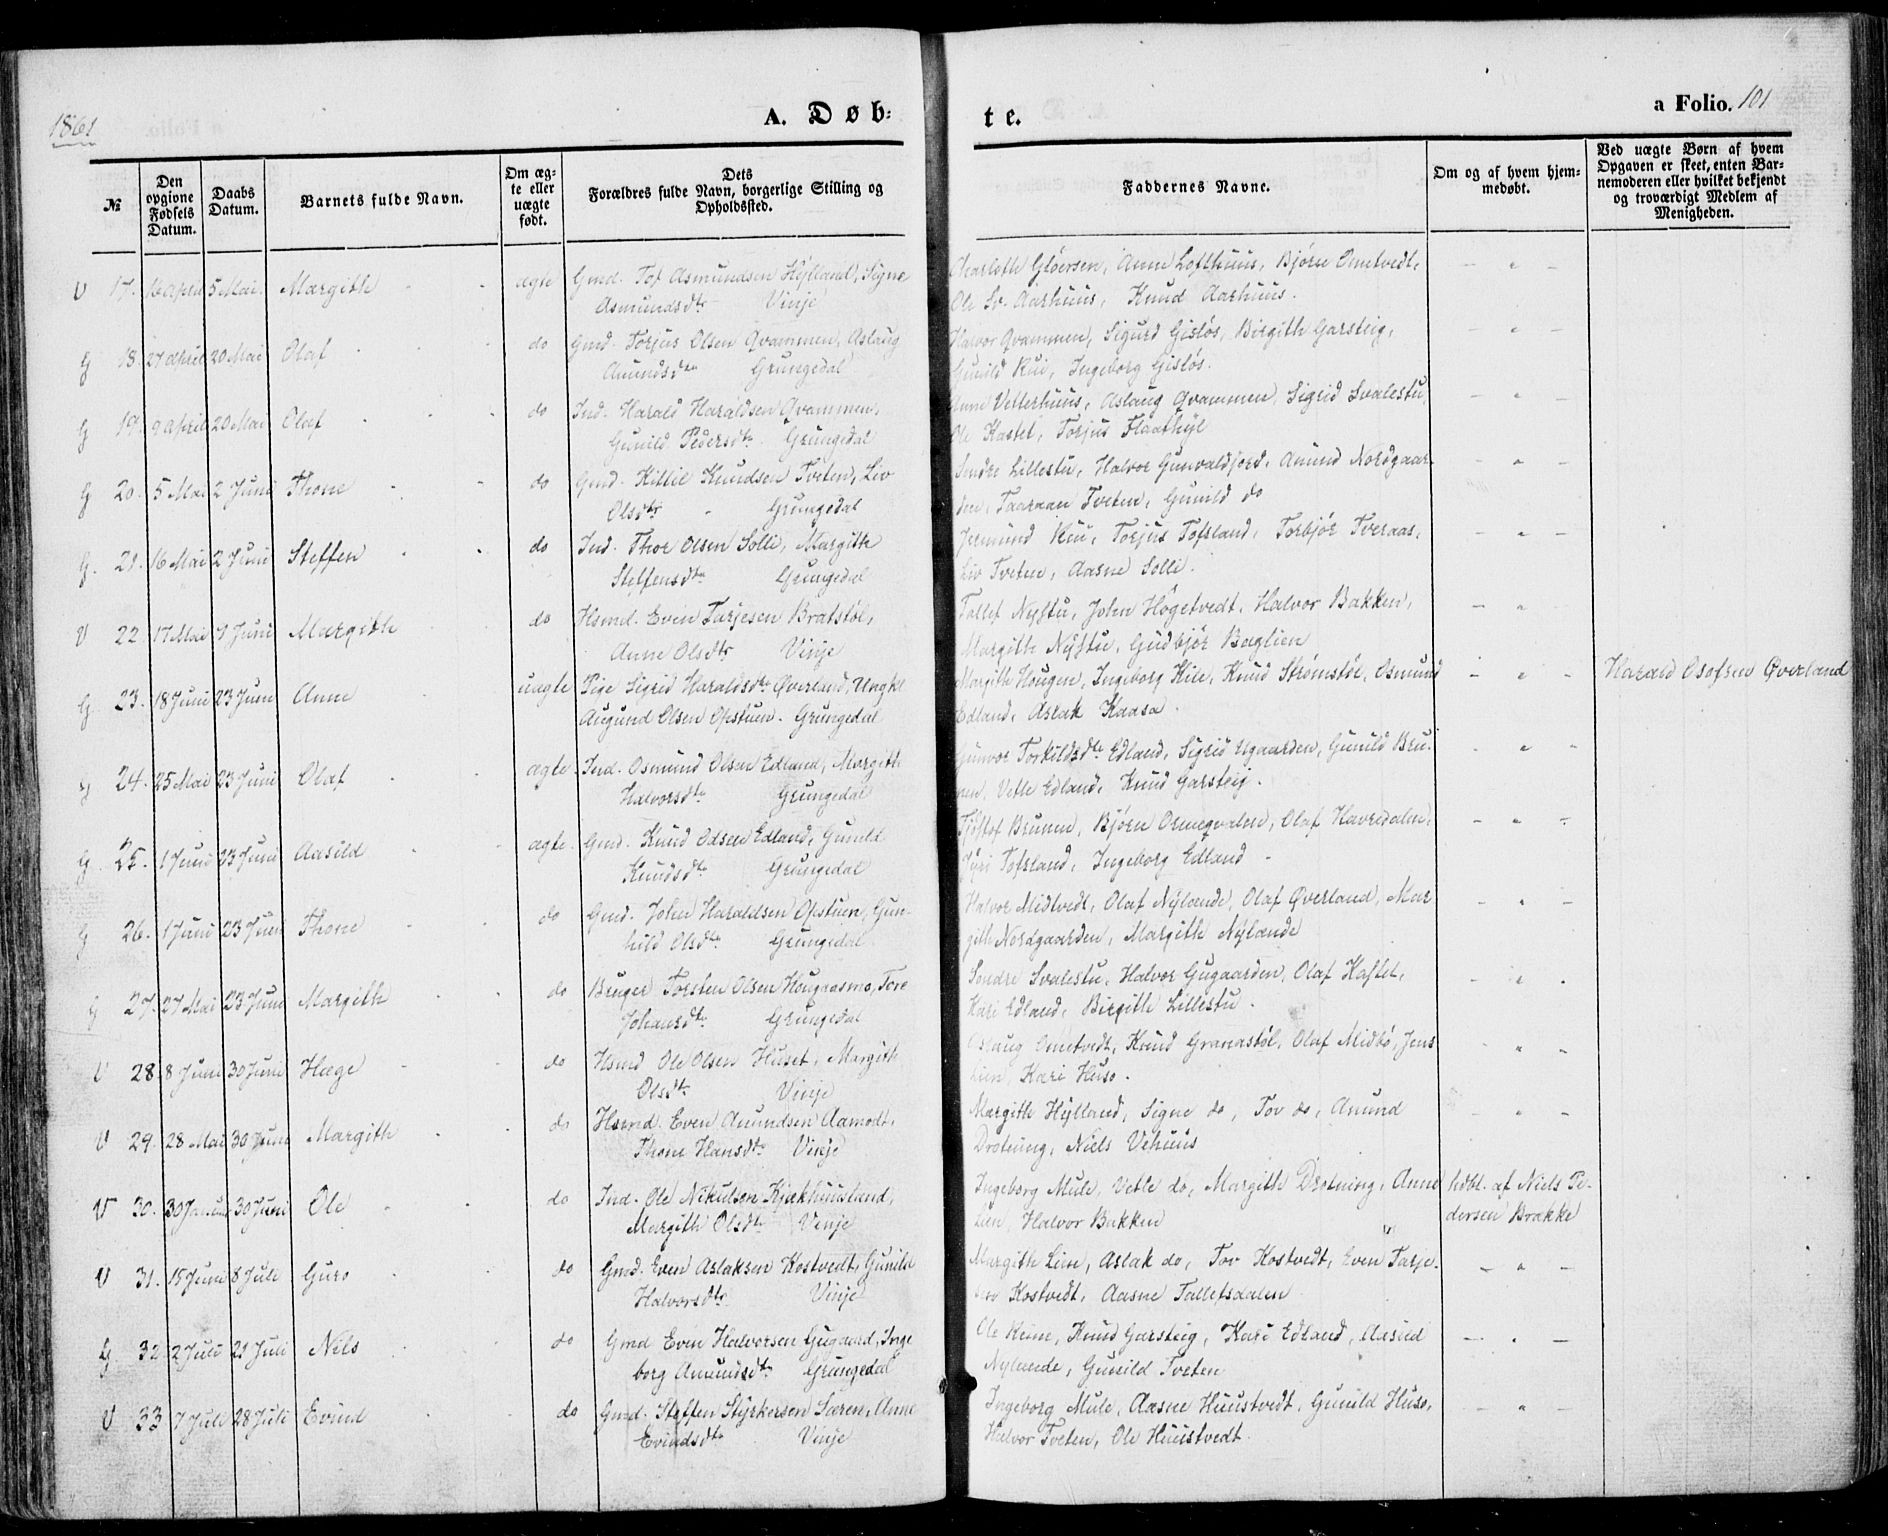 1861
A. Døb-
te.
a Folio. 101
№
Den opgivne Fødsels Datum.
Daabs Datum.
Barnets fulde Navn.
Om ægte eller uægte født.
Dets Forældres fulde Navn, borgerlige Stilling og Opholdssted.
Faddernes Navne.
Om og af hvem hjemmedøbt.
Ved uægte Børn af hvem Opgaven er skeet, enten Barnemoderen eller hvilket bekjendt og troværdigt Medlem af Menigheden.
V 17. 16 April 5 Mai. Margith - - ægte Gmd. Tof Asmundsen Hylland, Signe Charloth Gløersen, Anne Lofthuus, Bjørn Ometvedt, - " -
Asmundsdtr Vinje Ole Sv. Aarhuus, Knud Aarhuus.
G 18. 27 April 20 Mai Olaf - - do Gmd. Torjus Olsen Qvammen, Aslaug Halvor Qvammen, Sigurd Gisløs, Birgith Garsteig, - " -
Amundsdtr Grungedal Gunild Rui, Ingeborg Gisløs.
G 19. 9 April 20 Mai Olaf - - do Ind. Harald Haraldsen Qvammen, Anne Vetterhuus, Aslaug Qvammen, Sigrid Svalestu, - " -
Gunild Pedersdtr. Grungedal Ole Kastet, Torjus Flaathyl
G 20. 5 Mai 2 Juni Thone - - do Gmd. Kittil Knudsen Tveten, Liv Sondre Lillestu, Halvor Gunvaldjord, Amund Nordgaar- - " -
Olsdtr - Grungedal den, Taaraan Tveten, Gunild do
G. 21. 16 Mai 2 Juni Steffen - - do Ind. Thor Olsen Solli, Margith Jermund Rui, Torjus Tofsland, Torbjør Tveraas, - " -
Steffensdtr Grungedal Liv Tveten, Aasne Solli.
V 22 17 Mai 9 Juni Margith do Hsmd. Even Tarjesen Bratstøl, Tallef Nystu, John Høgetvedt, Halvor Bakken, - " -
Anne Olsdtr Vinje Margith Nystu, Gudbjør Baglien
G 23. 18 Juni 23 Juni Anne uægte Pige Sigrid Haraldsdtr Øverland, Ungkl Margith Hougen, Ingeborg Kile, Knud Strømstøl, Osmund - " - Harald Olofsen Øverland
Augund Olsen Opstuen. Grungedal Edland, Aslak Kaasa.
G 24. 25 Mai 23 Juni Olaf - - ægte Ind. Osmund Olsen Edland, Margith Gunvor Torkildsdtr Edland, Sigrid Ugaarden, Gunild Bru- - " -
Halvorsdtr Grungedal nen, Vetle Edland, Knud Garsteig.
G 25. 1 Juni 23 Juni Aasild - - ægte. Gmd. Knud Odsen Edland, Gunild Tjøstof Brunen, Bjørn Ormeqvalen, Olaf Havredalen, - " -
Knudsdtr Grungedal Jyri Tofsland, Ingeborg Edland -
G 26. 1 Juni 23 Juni Thone - - do Gmd. John Haraldsen Opstuen, Gun- Halvor Midtvedt, Olaf Nylænde, Olaf Øverland, Mar - " -
hild Olsdtr Grungedal gith Nordgaarden, Margith Nylænde
G 27. 27 Mai 23 Juni Margith - - do Bruger Torsten Olsen Hougaasmo, Tore Sondre Svalestu, Halvor Gugaarden, Olaf Kastet, - " -
Johansdtr. Grungedal Kari Edland, Birgith Lillestu.
V 28. 8 Juni 30 Juni Hæge - do Hsmd Ole Olsen Huset, Margith Aslaug Ometvedt, Knud Granastøl, Olaf Midbø, Jens - " -
Olsdtr Vinje Lien, Kari Huso.
V 29. 28 Mai 30 Juni Margith - - do Hsmd. Even Amundsen Aamodt, Margith Hylland, Signe do, Tov do, Amund - " -
Thone Hansdtr Vinje Drotning, Niels Vehuus
V 30. 30 Januar 30 Juni Ole - - do Ind. Ole Nikulsen Kjækhuusland, Ingeborg Mule, Vetle do, Margith Drotning, Anne hdbt. af Niels Pe-
Margith Olsdtr Vinje Lien, Halvor Bakken dersen Brakke
V 31. 15 Juni 8 Juli Guro - - do Gmd. Even Aslaksen Kostvedt, Gunild Margith Lien, Aslak do, Tov Kostvedt, Even Tarje- - " -
Halvorsdtr. Vinje sen Kostvedt, Aasne Tallefsdalen
G 32. 2 Juli 21 Juli Nils - do Gmd Even Halvorsen Gugaard, Inge Ole Kum, Knud Garsteig, Kari Edland, Aasild - " -
borg Amundsdtr Grungedal Nylænde, Gunild Tveten
V 33 7 Juli 28 Juli Evind - - do Gmd. Steffen Styrkersen Særen, Anne Ingeborg Mule, Aasne Huustvedt, Gunild Huso, - " -
Evindsdtr. Vinje Halvor Tveten, Ole Huustvedt.